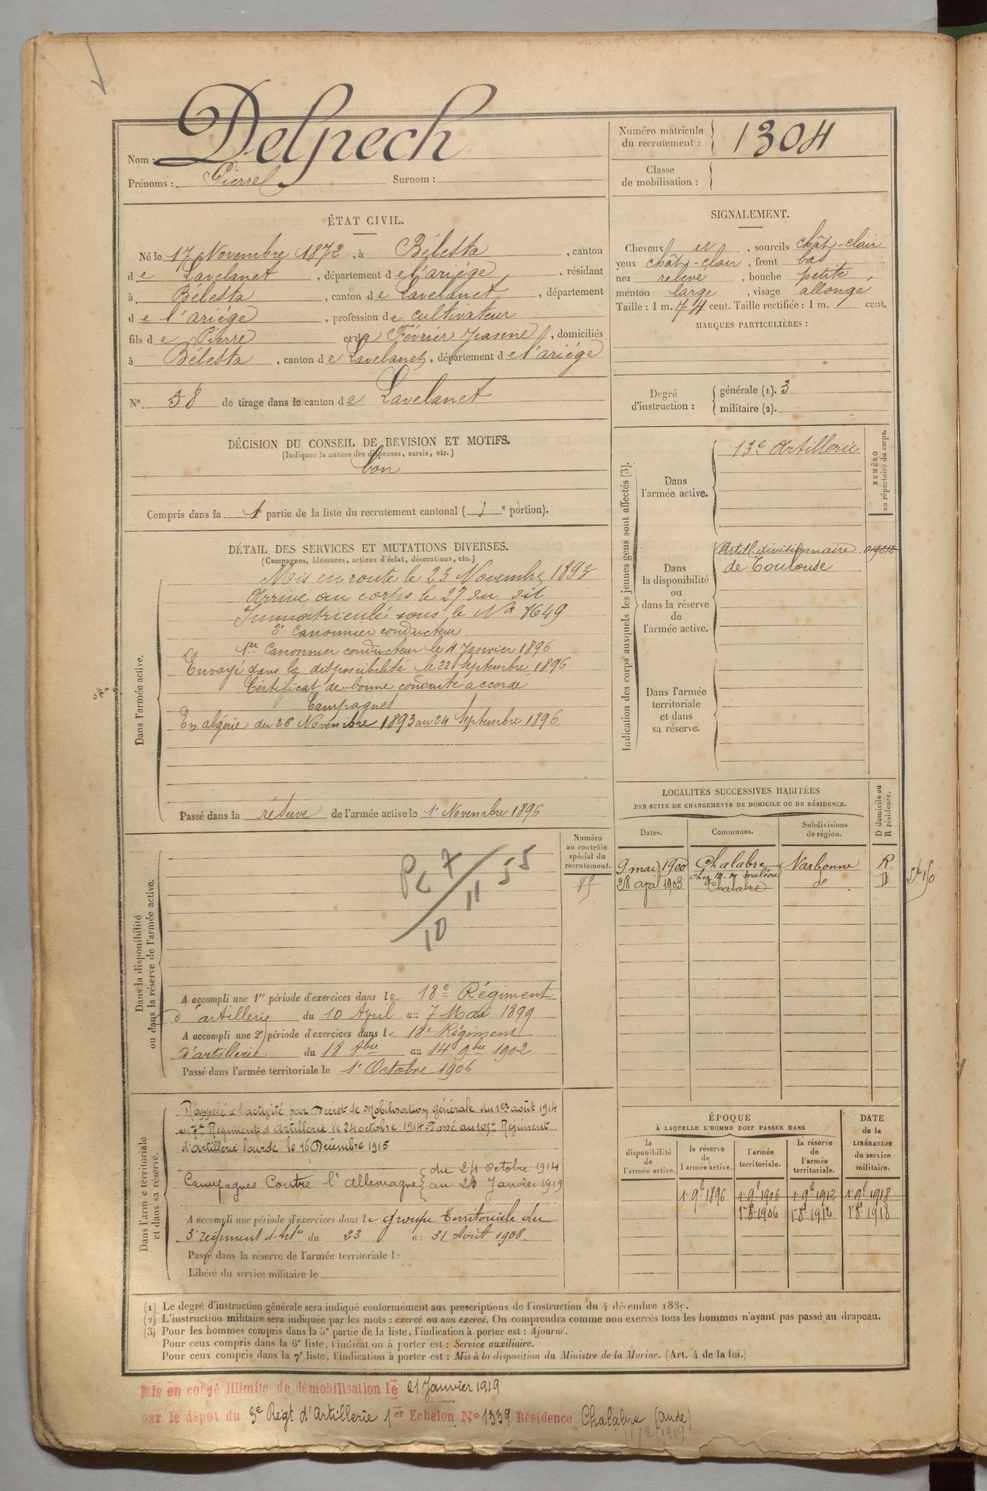 Nom : Delpech
Prénoms : Pierre Surnom :
Numéro matricule du recrutement : 1304
Classe de mobilisation :
ÉTAT CIVIL.
Né le 17 Novembre 1872, à Bélesta, canton
de Lavelanet, département de l'ariège, résidant
à Bélesta, canton de Lavelanet, département
de l'ariège, profession de cultivateur
fils de Pierre et de Février Jeanne, domiciliés
à Bélesta, canton de Lavelanet, département de l'ariège
N° 58 de tirage dans le canton de Lavelanet
SIGNALEMENT.
Cheveux et, sourcils chât-clair
yeux chât-clair, front bas
nez relevé, bouche petite
menton large, visage allongé
Taille : 1 m. 74 cent. Taille rectifiée : 1 m. cent.
MARQUES PARTICULIÈRES :
Degré d'instruction : générale (1). 3
militaire (2).
DÉCISION DU CONSEIL DE REVISION ET MOTIFS.
(Indiquer la nature des dispenses, sursis, etc.)
bon
Compris dans la 1e partie de la liste du recrutement cantonal ( e portion).
DÉTAIL DES SERVICES ET MUTATIONS DIVERSES.
(Campagnes, blessures, actions d'éclat, décorations, etc.)
Dans l'armée active.
Mis en route le 23 Novembre 1893
Arrivé au corps le 27 du dit
Immatriculé sous le No 7649
2e Canonnier conducteur
1er Canonnier conducteur le 11 Janvier 1896
Envoyé dans la disponibilité le 22 Septembre 1896
Certificat de bonne conduite accordé
Campagnes
En algérie du 28 Novembre 1893 au 24 Septembre 1896
Passé dans la réserve de l'armée active le 1er Novembre 1896
Indication des corps auxquels les jeunes gens sont affectés (3).
NUMÉRO au répertoire du corps.
Dans l'armée active.
13e Artillerie
Dans la disponibilité ou dans la réserve de l'armée active.
Artill. divisionnaire
de Toulouse
Dans l'armée territoriale et dans sa réserve.
LOCALITÉS SUCCESSIVES HABITÉES
PAR SUITE DE CHANGEMENTS DE DOMICILE OU DE RÉSIDENCE.
Dates. Communes. Subdivisions de région. D domicile ou R résidence.
9 mai 1900 Chalabre Narbonne R
1903 Chalabre do D
Dans la disponibilité ou dans la réserve de l'armée active.
Numéro au contrôle spécial du recrutement.
85
A accompli une 1re période d'exercices dans le 18e Régiment
d'artillerie du 10 April au 7 Mai 1899
A accompli une 2e période d'exercices dans le 18e Régiment
d'artillerie du 18 8bre au 14 9bre 1902
Passé dans l'armée territoriale le 1er Octobre 1906
Dans l'armée territoriale et dans sa réserve.
Rappelé à l'activité par Décret de Mobilisation générale du 1er août 1914
Régiment d'Artillerie le 24 octobre 1914. Passé au Régiment
d'artillerie lourde le 16 Décembre 1915
Campagnes Contre l'Allemagne du 24 Octobre 1914
au 21 Janvier 1919
A accompli une période d'exercices dans le groupe Territoriale du
3e régiment d'Artie du 23 au 31 Août 1908
Passé dans la réserve de l'armée territoriale le
Libéré du service militaire le
ÉPOQUE
À LAQUELLE L'HOMME DOIT PASSER DANS
DATE de la LIBÉRATION du service militaire.
la disponibilité de l'armée active. la réserve de l'armée active. l'armée territoriale. la réserve de l'armée territoriale.
1 9e 1896 1 9e 1906 1 9e 1912 1 9e 1918
1 8e 1906 1 8e 1912 1 8e 1918
(1) Le degré d'instruction générale sera indiqué conformément aux prescriptions de l'instruction du 4 décembre 1889.
(2) L'instruction militaire sera indiquée par les mots : exercé ou non exercé. On comprendra comme non exercés tous les hommes n'ayant pas passé au drapeau.
(3) Pour les hommes compris dans la 5e partie de la liste, l'indication à porter est : Ajourné.
Pour ceux compris dans la 6e liste, l'indication à porter est : Service auxiliaire.
Pour ceux compris dans la 7e liste, l'indication à porter est : Mis à la disposition du Ministre de la Marine. (Art. 4 de la loi.)
Mis en congé illimité de démobilisation le 21 Janvier 1919
par le dépôt du 3e Régt d'Artillerie 1er Echelon N° 1339 Résidence Chalabre (aude)